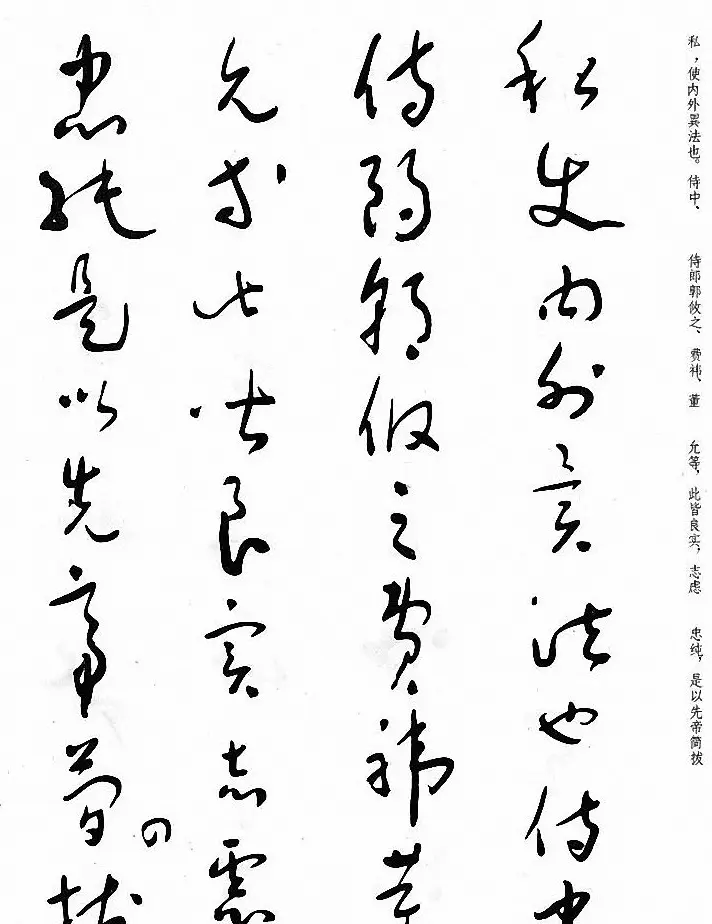 私,使内外異法也。侍中、 侍郎郭攸之、费祎、董 允等,此皆良实,志虑 忠纯,是以先帝简拔
私使内外異法也侍中
侍郎郭攸之費禕董
允等此皆良實志慮
忠純是以先帝簡拔